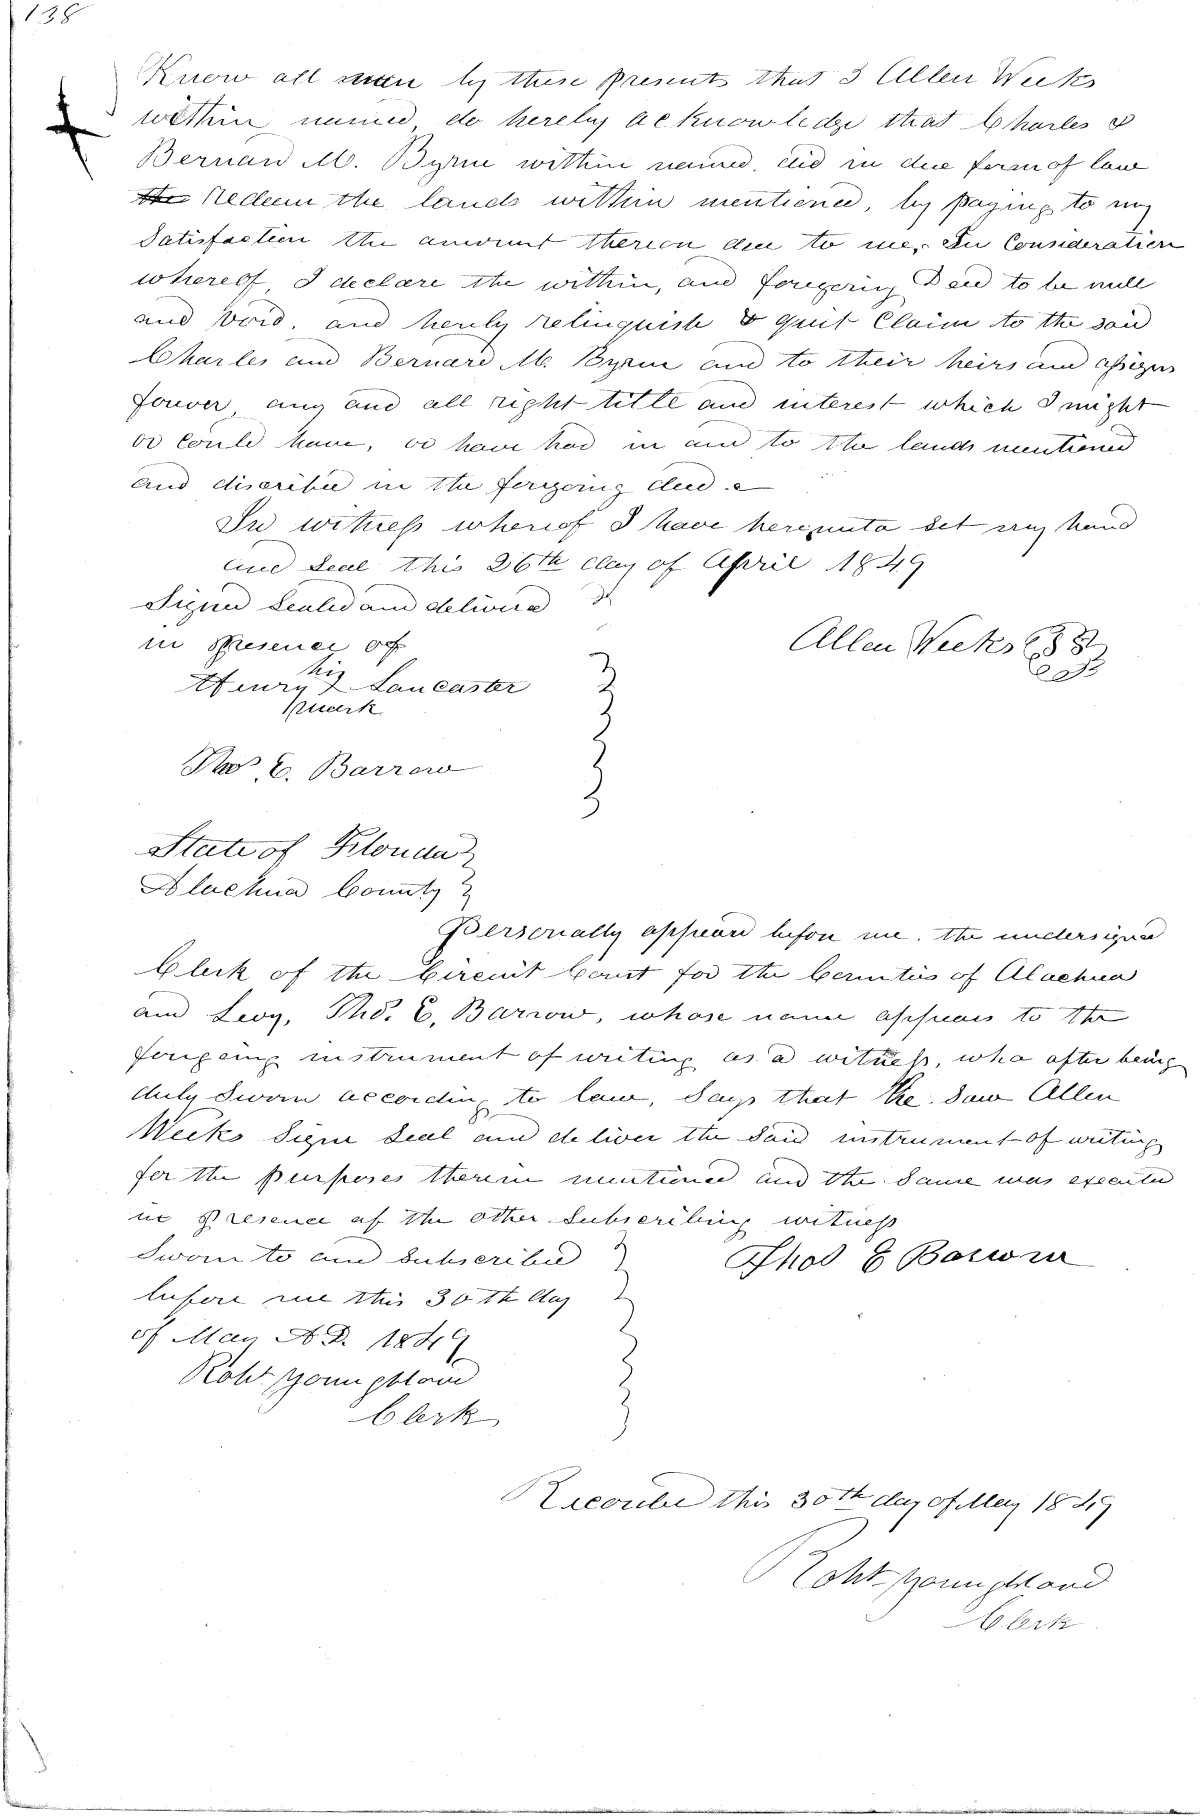 138
Know all men by these presents that I Allen Weeks
within named, do hereby acknowledge that Charles &
Bernard M. Byrne within named, did in due form of law
the Redeem the lands within mentioned, by paying to my
Satisfaction the amount thereon due to me, In Consideration
whereof, I declare the within, and foregoing Deed to be null
and void, and hereby relinquish & quit Claim to the said
Charles and Bernard M. Byrne and to their heirs and assigns
forever, any and all right title and interest which I might
or could have, or have had in and to the lands mentioned
and discribed in the foregoing deed.
In witness whereof I have hereunto set my hand
and seal this 26th day of April 1849
Signed Sealed and delivered
in presence of
Allen Weeks
his
Henry X Lancaster
mark
Thos. E. Barrow
State of Florida
Alachua County
Personally appeared before me. the undersigned
Clerk of the Circuit Court for the Counties of Alachua
and Levy, Tho. E. Barrow, whose name appears to the
foregoing instrument of writing as a witness, who after being
duly Sworn according to law, Says that he saw Allen
Weeks Sign Seal and deliver the said instrument of writing
for the purposes therein mentioned and the same was executed
in presence of the other subscribing witness
Sworn to and subscribed
Thos E Barrow
before me this 30th day
of May A.D. 1849
Robt Youngblood
Clerk
Recorded this 30th day of May 1849
Robt Youngblood
Clerk